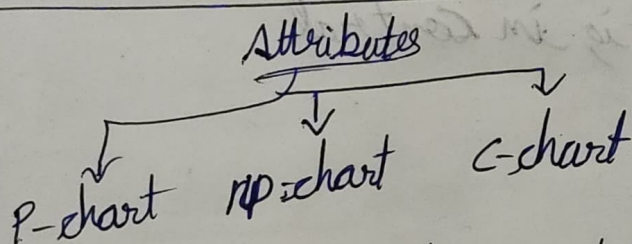 Attributes
P-chart np-chart C-chart